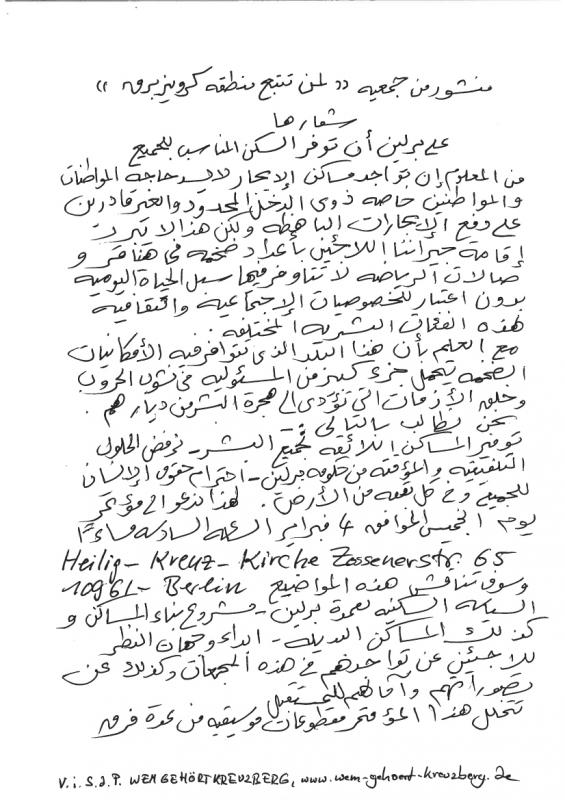 منشور من جمعيه (( لمن تتبع منطقه كرويزبرق ))
شعارها
على برلين أن توفر السكن المناسب للجميع
من المعلوم إن تواجد مساكن الإيجار لايسد حاجه المواطنات
والمواطنين خاصه ذوي الدخل المحدود والغير قادرين
على دفع الإيجارات الباهظه ولكن هذا لا يبرر
إقامة جيراننا اللاجئين بأعداد ضخمه في هناقر و
صالات الرياضه لا تتاوفر فيها سبل الحياة اليوميه
بدون اعتبار للخصوصيات الإجتماعية والثقافية
لهذه الفئات البشريه المختلفه.
مع العلم بأن هذا البلد الذي تتوافر فيه الأمكانيات
الضخمه يتحمل جزء كبير من المسئوليه في نشوب الحروب
وخلق الأزمات التي تؤدي الى هجرة البشر من ديارهم.
نحن نطالب بالتالي
توفير المساكن اللائقه لجميع البشر - نرفض الحلول
والمؤقته من حكومه برلين - احترام حقوق الإنسان
للجميع وفي كل بقعه من الأرض. لهذا ندعوا الى مؤتمر
يوم الخميس الموافق 4 فبراير الساعه السادسه مساءً
Heilig - Kreuz - Kirche Zossenerstr. 65
10961 - Berlin وسوف تناقش هذه المواضيع
السياسه السكنيه لعمدة برلين - مشروع بناء المساكن و
كذلك المساكن البديله - ابداء وجهات النظر
للاجئين عن تواجدهم في هذه المجمعات وكذلك عن
تصوراتهم وآمالهم للمستقبل
تتخلل هذا المؤتمر مقطوعات موسيقيه من عدة فرق
V.i.S.d.P. WEM GEHÖRT KREUZBERG, www.wem-gehoert-kreuzberg.de